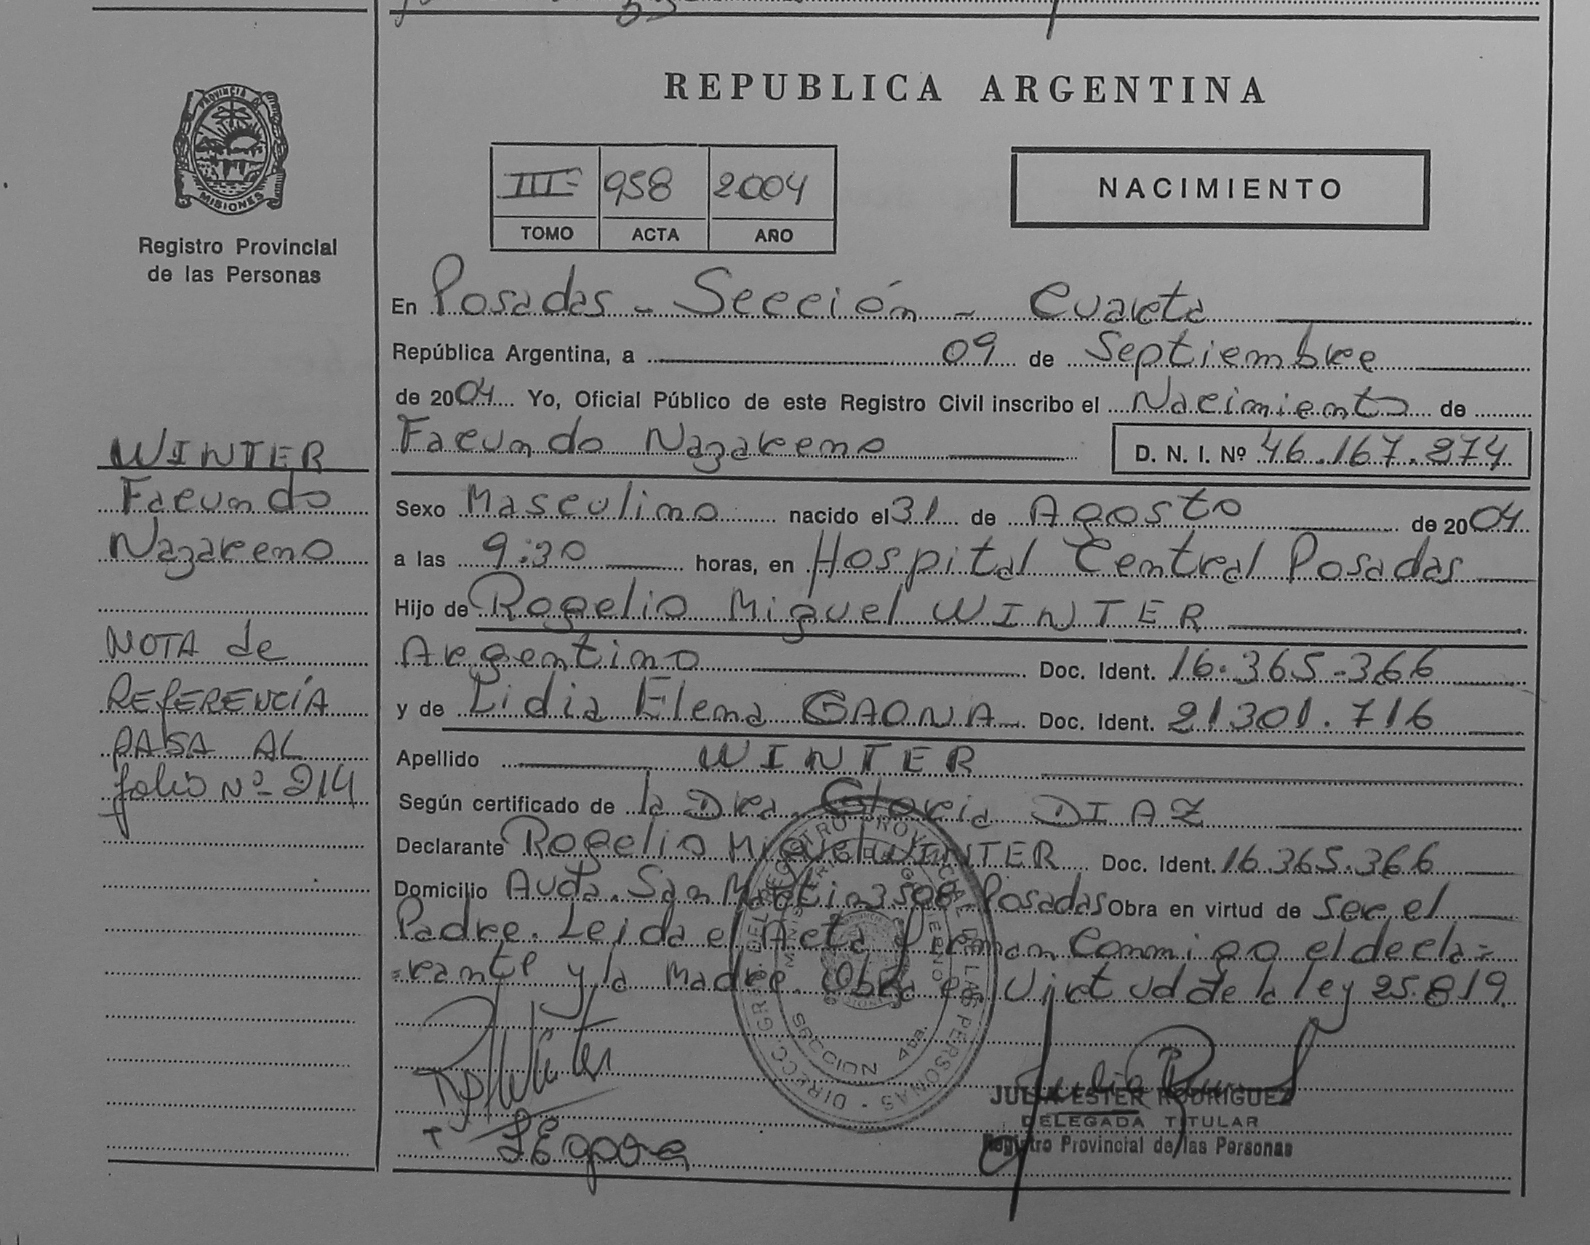 REPUBLICA ARGENTINA
PROVINCIA DE
MISIONES
Registro Provincial
de las Personas
III 958 2004
TOMO ACTA AÑO
NACIMIENTO
En Posadas - Sección - Cuarta
República Argentina, a 09 de Septiembre
de 2004 Yo, Oficial Público de este Registro Civil inscribo el Nacimiento de
Facundo Nazareno D. N. I. Nº 46.167.274
Sexo Masculino nacido el 31 de Agosto de 2004
a las 9:30 horas, en Hospital Central Posadas
Hijo de Rogelio Miguel WINTER
Argentino Doc. Ident. 16.365.366
y de Lidia Elena GAONA Doc. Ident. 21301.716
Apellido WINTER
Según certificado de la Dra. Gloria DIAZ
Declarante Rogelio Miguel WINTER Doc. Ident. 16.365.366
Domicilio Avda. San Martin 3508 Posadas Obra en virtud de ser el
Padre. Leida el Acta firman conmigo el decla=
=rante y la Madre. Obra en Virtud de la ley 25.819
WINTER
Facundo
Nazareno
NOTA de
REFERENCIA
PASA AL
folio Nº 214
SECCION 4ta.
JULIA ESTER RODRIGUEZ
DELEGADA TITULAR
Registro Provincial de las Personas